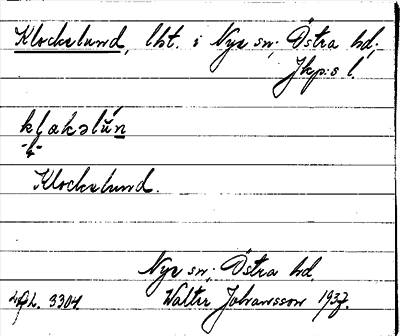 Klockslund, lht. i Nye sn; Östra hd;
Jkp:s l.
klakəlún
-4-
Klockslund.
Nye sn; Östra hd.
3304. Walter Johansson 1937.